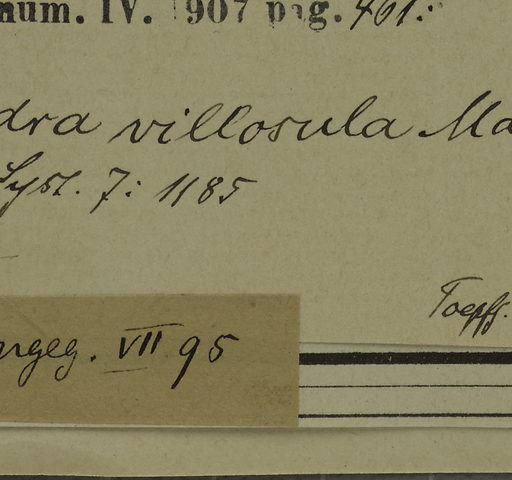 num. IV. 1907 pag. 461:
dra villosula Ma
Syst. 7: 1185
Toepff.
ngeg. VII 95